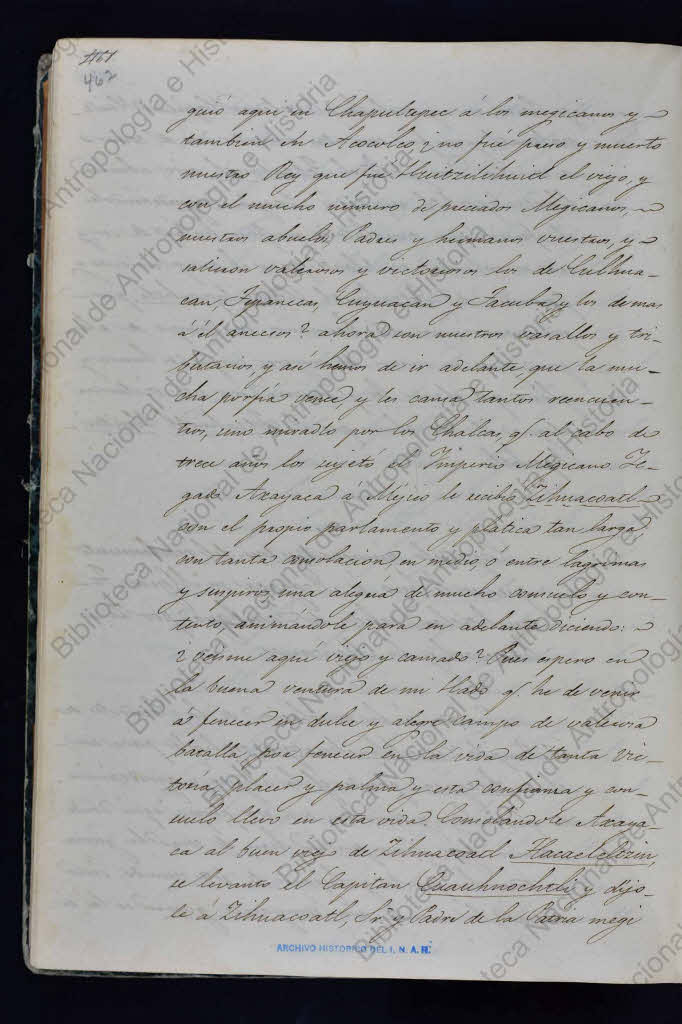 461
462
guió aqui en Chapultepec á los megicanos y
tambien en Acocolco, ¿no fué preso y muerto
nuestro Rey que fué Huitzilihuitl el viejo, y
con el mucho número de preciados Megicanos,
nuestros abuelos Padres y hermanos vuestros, y
salieron valerosos y victoriosos los de Culhua-
can, Tepanecas, Cuyuacan y Tacuba y los demas
á él anecsos? ahora son nuestros vasallos y tri-
butarios, y así hemos de ir adelante que la mu-
cha porfía vence y les cansa tantos reencuen-
tros, sino miradlo por los Chalcas, q.e al cabo de
trece años los sujetó el Imperio Megicano. Le-
gado Axayaca á Mejico le recibió Zihuacoatl
con el propio parlamento y platica tan larga,
con tanta consolacion en medio, ó entre lagrimas
y suspiros, una alegria de mucho consuelo y con-
tento, animándole para en adelante diciendo:
¿veisme aqui viejo y cansado? Pues espero en
la buena ventura de mi Hado q.e he de venir
á fenecer en dulce y alegre campo de valerosa
batalla, por fenecer en la vida de tanta vic-
toria, placer y palma y esta confianza y con-
suelo llevo en esta vida. Consolandole Axaya-
ca al buen viejo de Zihuacoatl Tlacaeleltzin,
se levantó el Capitan Cuauhnochtli y dijo-
le á Zihuacoatl, Sr. y Padre de la Patria megi
ARCHIVO HISTORICO DEL I. N. A. H.
Biblioteca Nacional de Antropología e Historia